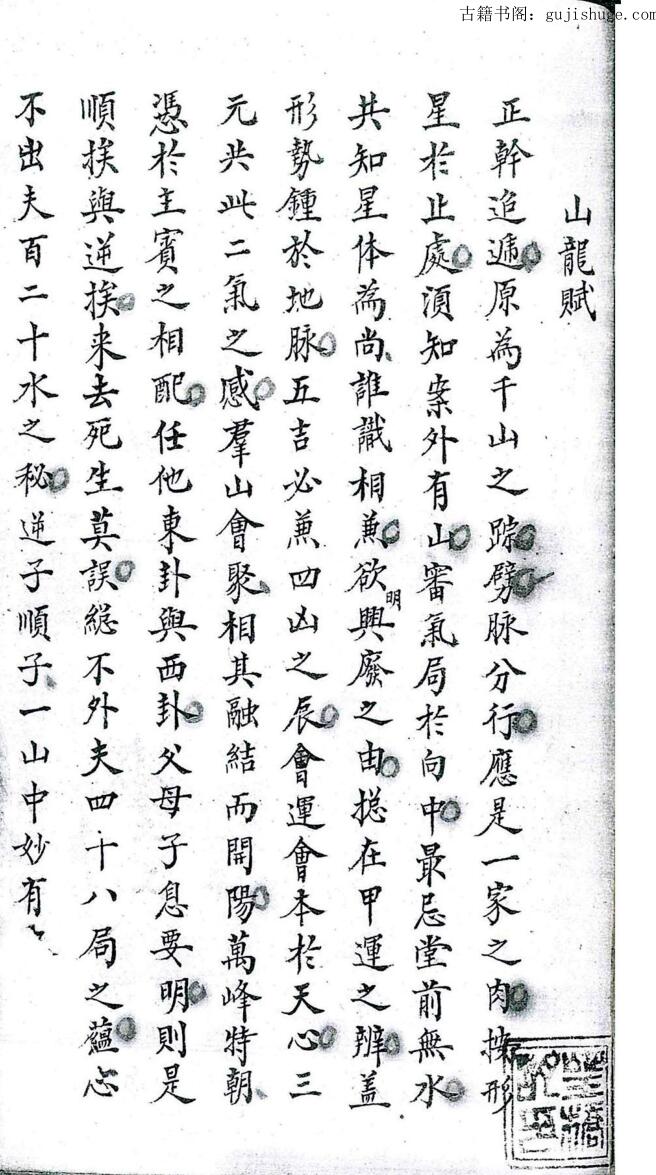 古籍书阁：gujishuge.com
山龍賦
正幹迢遞原為千山之踪劈脉分行應是一家之肉揀形
星於止處湏知案外有山審氣局於向中最忌堂前無水
共知星体為尚誰識相兼欲明興廢之由揔在甲運之辨盖
形勢鍾於地脉五吉必兼四凶之辰會運會本於天心三
元共此二氣之感羣山會聚相其融結而開陽萬峰特朝
憑於主賓之相配任他東卦與西卦父母子息要明則是
順挨與逆挨来去死生莫誤緫不外夫四十八局之蘊心
不出夫百二十水之秘逆子順子一山中妙有